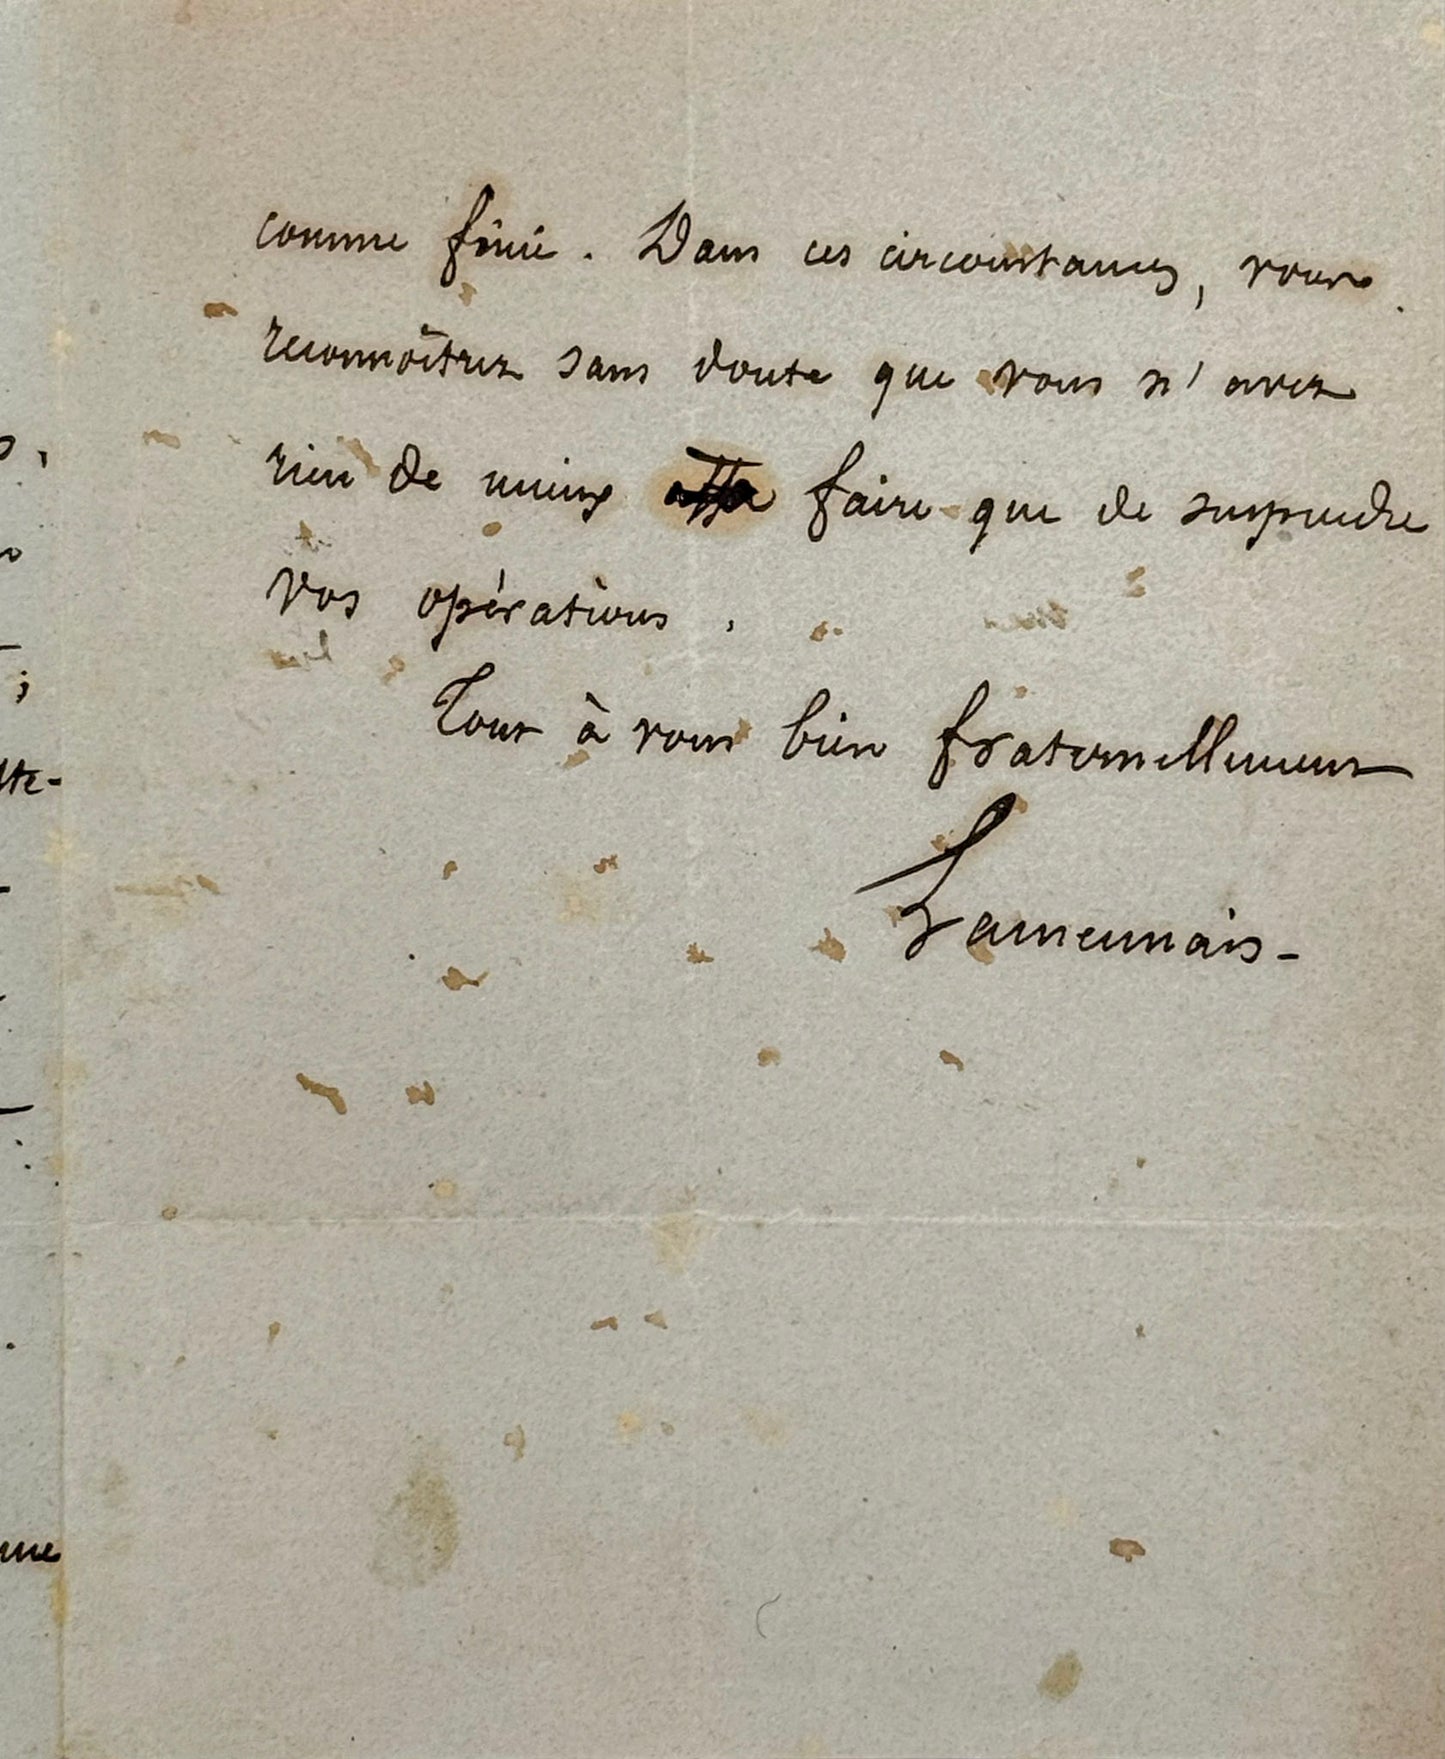 comme finie. Dans ces circonstances, vous
reconnoîtrez sans doute que vous n'avez
rien de mieux à faire que de suspendre
vos opérations.
Tout à vous bien fraternellement
Lamennais-